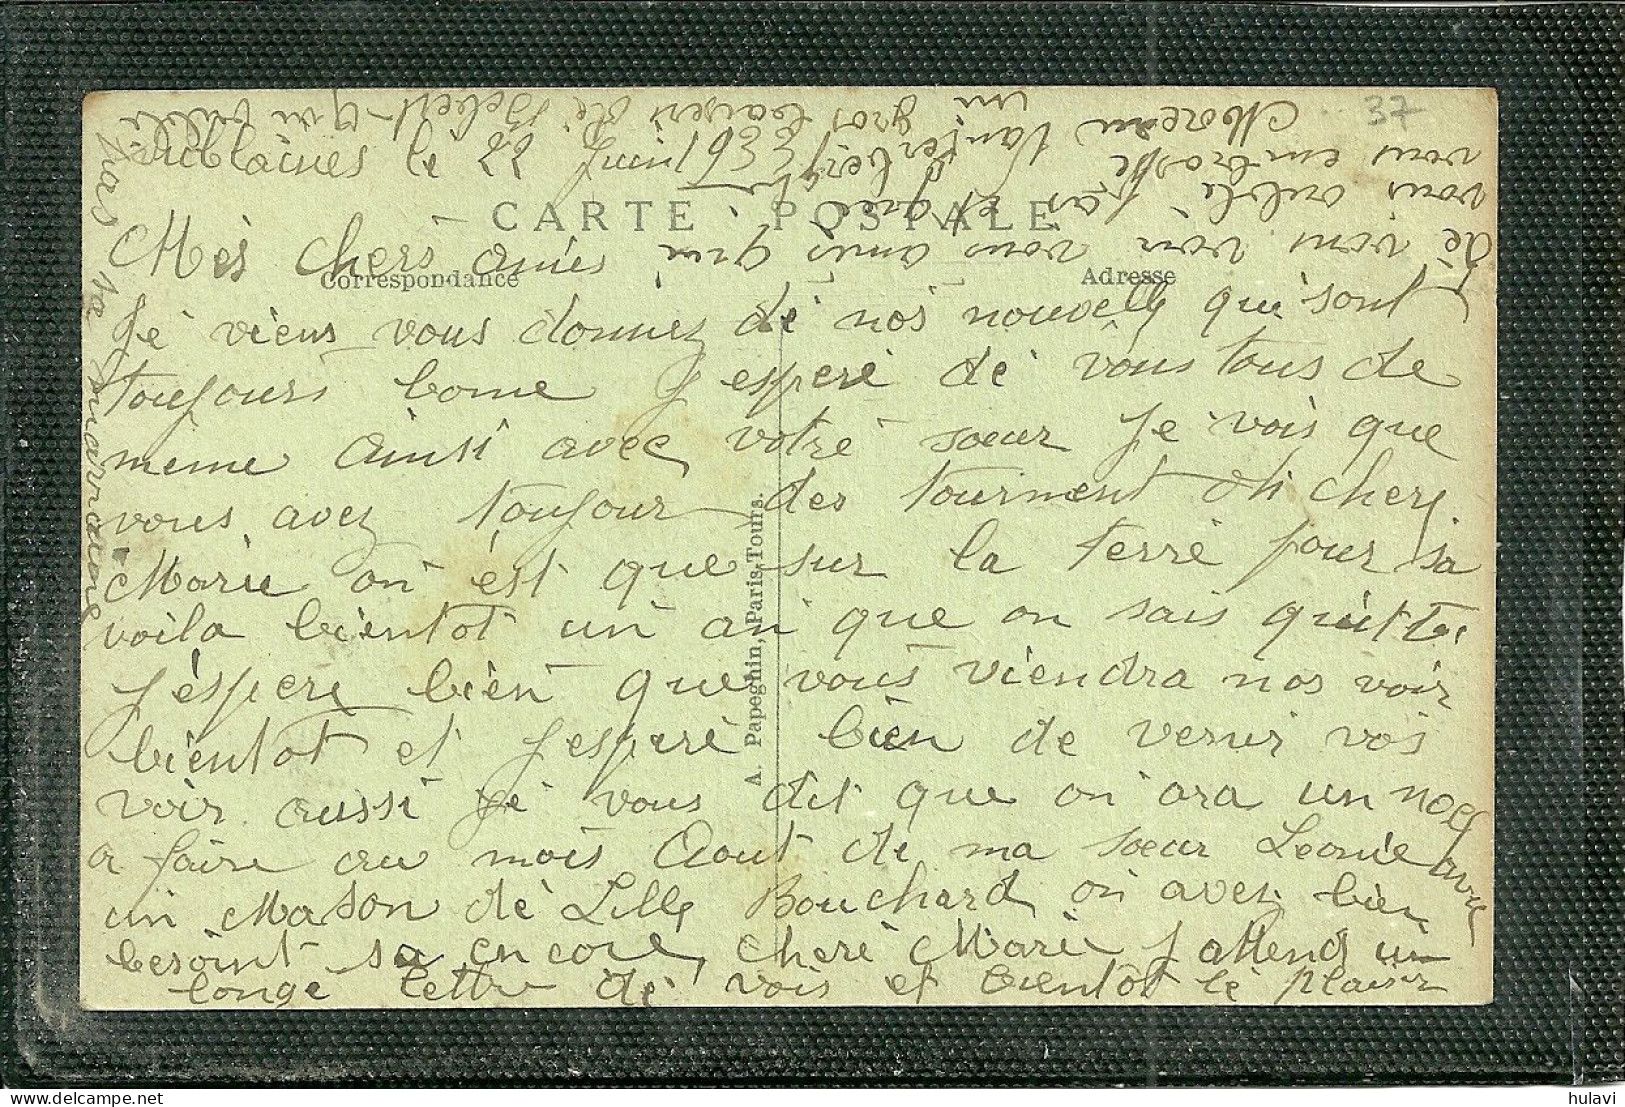 37
Ablaines le 22 Juin 1933
CARTE POSTALE
Correspondance
Adresse
Mes chers amies
Je viens vous donnez de nos nouvelle qui sont
toujours bonne J espere de vous tous de
meme ainsi avec votre soeur Je vois que
vous avez toujour des tourment Oh chere
Marie on est que sur la terre pour sa
voila bientot un an que on sais quitte
J'espere bien que vous viendra nos voir
bientot et J espere bien de venir vos
voir aussi Je vous dit que on ora un noce
a faire au mois Aout de ma soeur Leonie avec
un Mason de Lille Bouchard on avez bien
besoint sa encore, chere Marie J attend un
longe lettre de vois et bientôt le plaisir
de vous voir vous amis qui
vous oublie pas et que
vous embrasse
Moreau
un gros baisers de Bebert
pas ta marraine
A. Papeghin, Paris-Tours.
hulavi